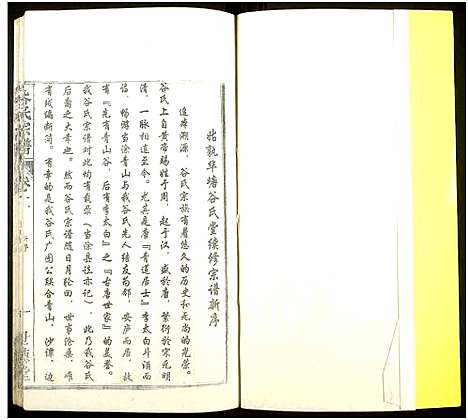 姑孰华塘谷氏堂续修宗谱新序
追本溯源，谷氏宗族有着悠久的历史和无尚的光荣。
谷氏上自黄帝赐姓于周，起于汉，盛于唐，繁衍于宋元明
清，一脉相连至今。尤其是唐『青莲居士』李太白斗酒两
诣，畅游当涂青山与我谷氏先人结友为邻，安庐而居，
有『先有青山谷，后有李太白』之『古唐世家』的美誉。
我谷氏宗谱对此均有载录（当涂县志亦记），此乃我谷氏
后裔之大幸也。然而谷氏宗谱随日月轮回，世事沧桑，难
有残编断简。有幸的是我谷氏广园公联合青山、沙潭、边
谷氏宗谱